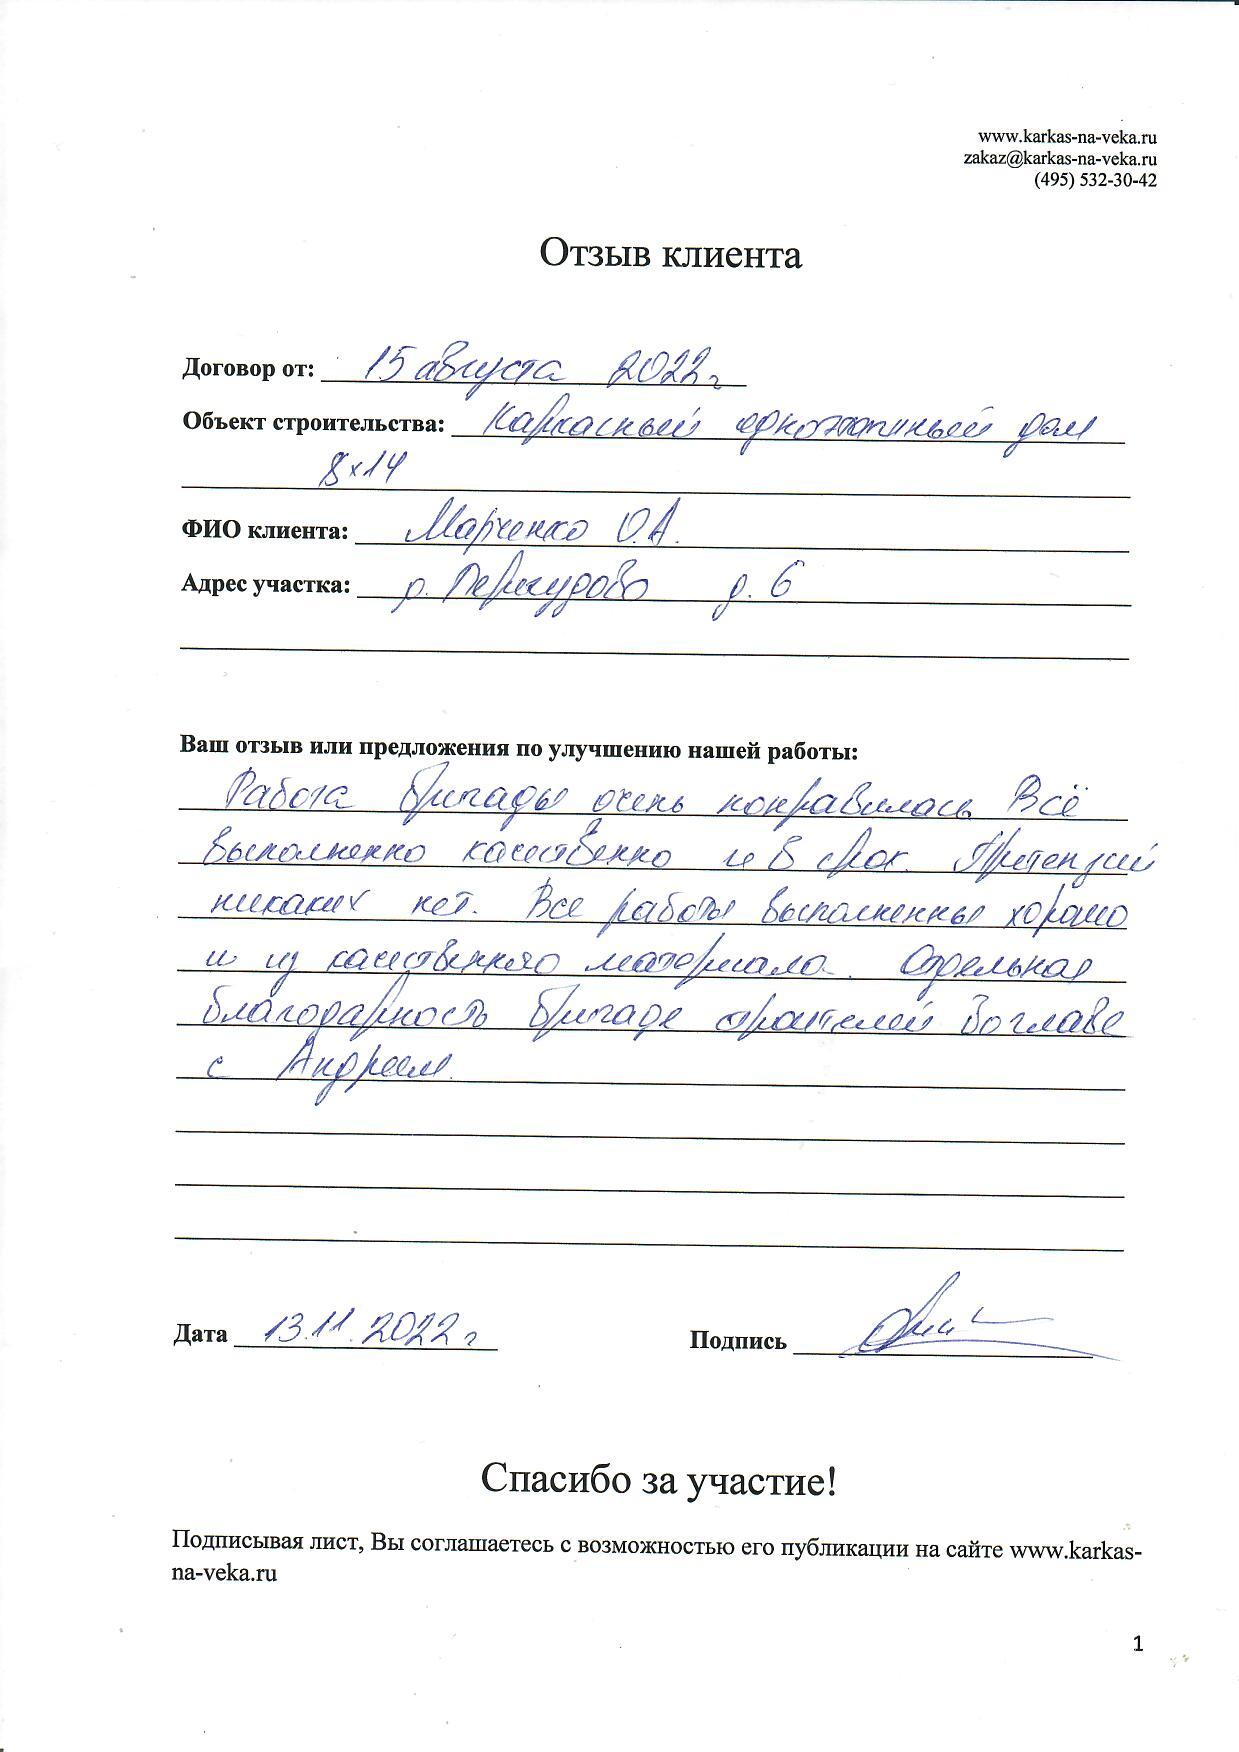 www.karkas-na-veka.ru
zakaz@karkas-na-veka.ru
(495) 532-30-42
Отзыв клиента
Договор от: 15 августа 2022 г
Объект строительства: Каркасный одноэтажный дом
8х14
ФИО клиента: Марченко О.А.
Адрес участка: д. 6
Ваш отзыв или предложения по улучшению нашей работы:
Работа бригады очень понравилась Всё
выполненно качественно и в срок. Претензий
никаких нет. Все работы выполненны хорошо
и из качественного материала. Отдельная
благодарность бригаде строителей во главе
с Андреем.
Дата 13.11.2022 г
Подпись
Спасибо за участие!
Подписывая лист, Вы соглашаетесь с возможностью его публикации на сайте www.karkas-
na-veka.ru
1